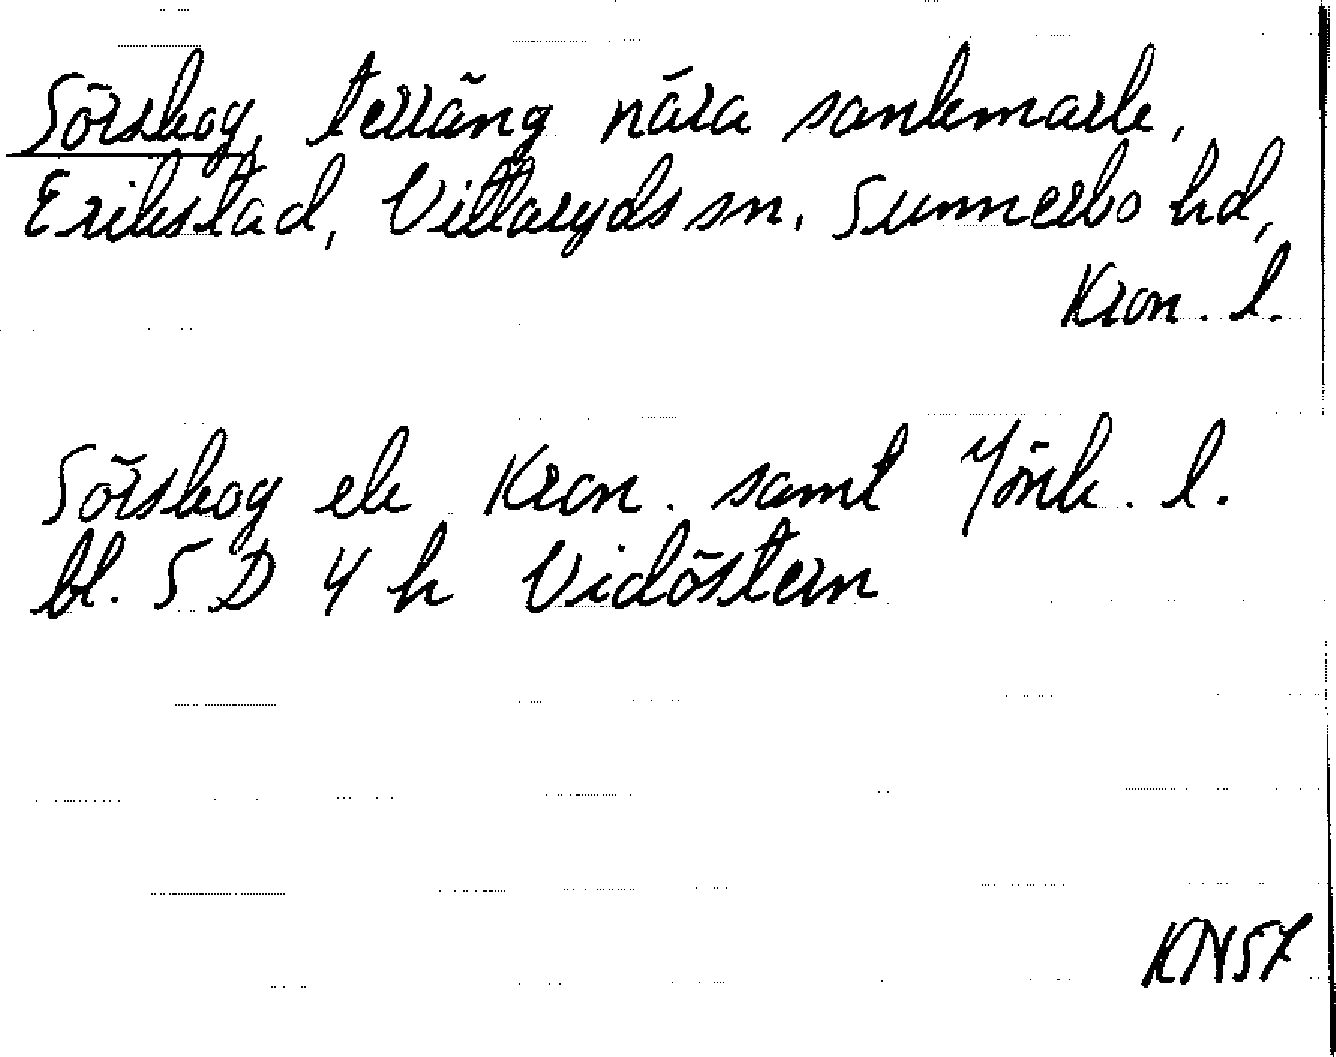 Sörskog, terräng nära sankmark,
Erikstad, Vittaryds sn. Sunnerbo hd,
Kron. l.
Sörskog ek Kron. samt Jönk. l.
bl. 5 D 4 h Vidöstern
KN57